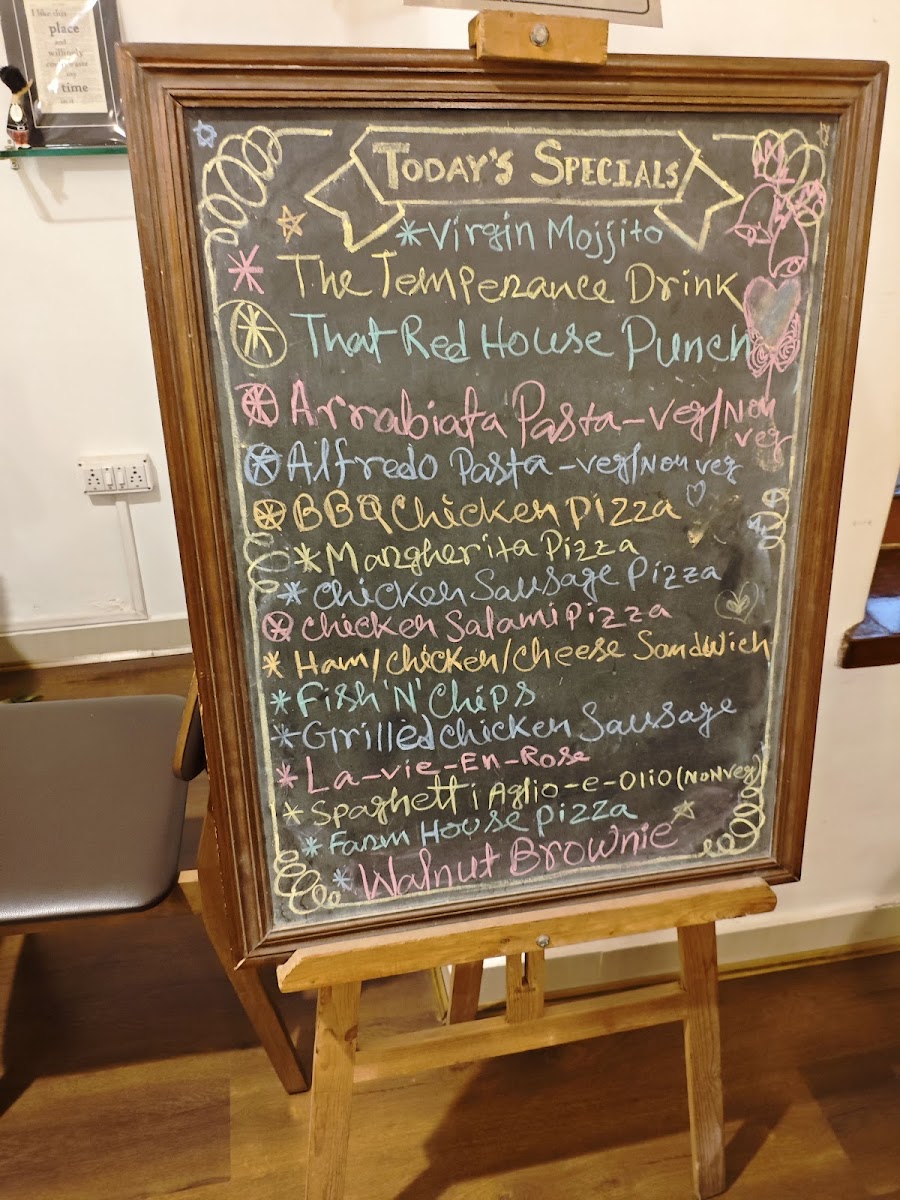 I like this
place
and
willingly
could waste
my
time
in it
TODAY'S SPECIALS
Virgin Mojjito
The Temperance Drink
That Red House Punch
Arrabiata Pasta-veg/Non
veg
Alfredo Pasta-veg/Non veg
BBQ Chicken Pizza
Mangherita Pizza
Chicken Sausage Pizza
Chicken Salami Pizza
Ham/Chicken/Cheese Sandwich
Fish 'N' Chips
Grilled Chicken Sausage
La-vie-En-Rose
Spaghetti Aglio-e-Olio (Non veg)
Farm House Pizza
Walnut Brownie